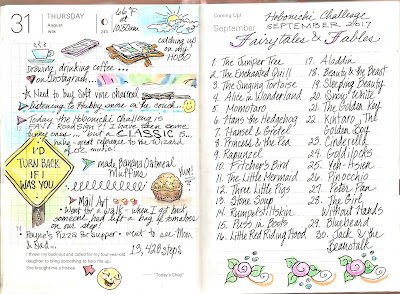 31
THURSDAY
August
243
66°F
at
10:50am
catching up
on my
HOBO
Drawing, drinking coffee...
on Instagram...
★ Need to buy soft vine charcoal
Listening to Hubby snore on the couch
Today the Hobonichi Challeng is
FAV Roadsign?! I have seen some
funny ones... but a CLASSIC is...
great reference to the Wizard
I'D
TURN BACK
IF I
WAS YOU
made Banana Oatmeal
Muffins
Mail Art
Went for a walk - when I got back
someone had left a bag of tomatoes
on our step!
Payne's Pizza for Supper • went to see Mom
& Dad...
13,428 Steps
I threw my back out and called for my four-year-old
daughter to bring something to help me up.
She brought me a frisbee.
"Today's Child"
Coming Up!
Hobonichi Challenge
September
SEPTEMBER 2017
Fairytales & Fables
1. The Juniper Tree
2. The Enchanted Quill
3. The Singing Tortoise
4. Alice in Wonderland
5. Momotaro
6. Hans the Hedgehog
7. Hansel & Gretel
8. Princess & the Pea
9. Rapunzel
10. Pitcher's Bird
11. The Little Mermaid
12. Three Little Pigs
13. Stone Soup
14. Rumpelstiltskin
15. Puss in Boots
16. Little Red Riding Hood
17. Aladdin
18. Beauty & the Beast
19. Sleeping Beauty
20. Snow White
21. The Golden Key
22. Kintaro, The
Golden Boy
23. Cinderella
24. Goldilocks
25. Yeh-Hsien
26. Pinocchio
27. Peter Pan
28. The Girl
Without Hands
29. Bluebeard
30. Jack & the
Beanstalk